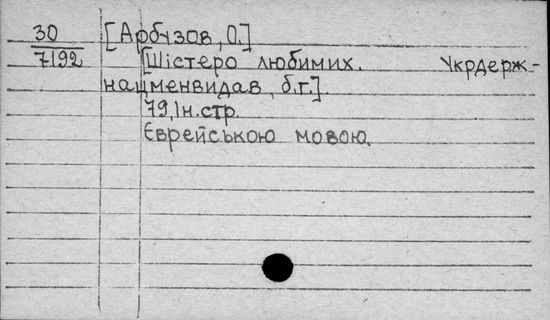 30 [Арбузов, О.]
7192 [Шістеро любимих. Укрдерж-
нацменвидав, б.г.].
79,1н.стр.
Єврейською мовою.